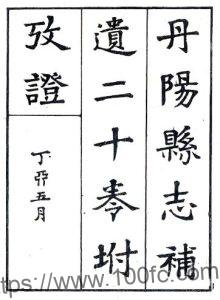 丹陽縣志補
遺二十卷坿
攷證
丁亥五月
tps://www.100fc.com